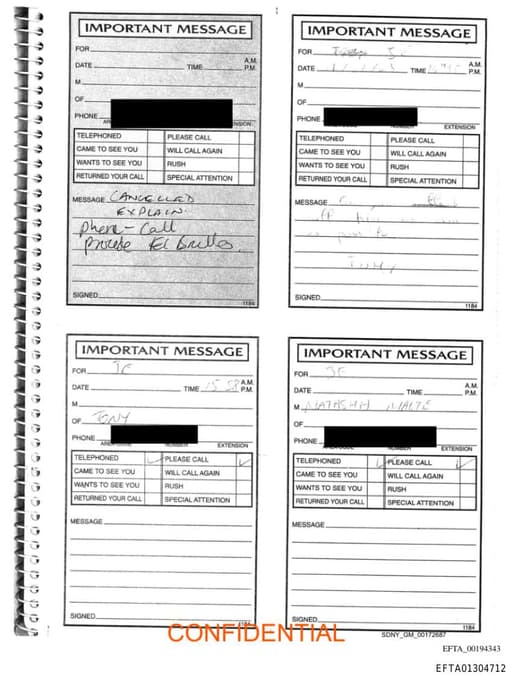 IMPORTANT MESSAGE
FOR
DATE TIME A.M. P.M.
M
OF
PHONE
TELEPHONED PLEASE CALL
CAME TO SEE YOU WILL CALL AGAIN
WANTS TO SEE YOU RUSH
RETURNED YOUR CALL SPECIAL ATTENTION
MESSAGE CANCELLED
EXPLAIN
phone - Call
SIGNED
1184
IMPORTANT MESSAGE
FOR
DATE TIME A.M. P.M.
M
OF
PHONE
EXTENSION
TELEPHONED PLEASE CALL
CAME TO SEE YOU WILL CALL AGAIN
WANTS TO SEE YOU RUSH
RETURNED YOUR CALL SPECIAL ATTENTION
MESSAGE
TONY
SIGNED
1184
IMPORTANT MESSAGE
FOR JE
DATE TIME A.M. P.M.
M
OF TONY
PHONE
EXTENSION
TELEPHONED PLEASE CALL
CAME TO SEE YOU WILL CALL AGAIN
WANTS TO SEE YOU RUSH
RETURNED YOUR CALL SPECIAL ATTENTION
MESSAGE
SIGNED
1184
IMPORTANT MESSAGE
FOR JE
DATE TIME A.M. P.M.
M NATASHA
OF
PHONE
EXTENSION
TELEPHONED PLEASE CALL
CAME TO SEE YOU WILL CALL AGAIN
WANTS TO SEE YOU RUSH
RETURNED YOUR CALL SPECIAL ATTENTION
MESSAGE
SIGNED
1184
CONFIDENTIAL
SDNY_GM_00172687
EFTA_00194343
EFTA01304712